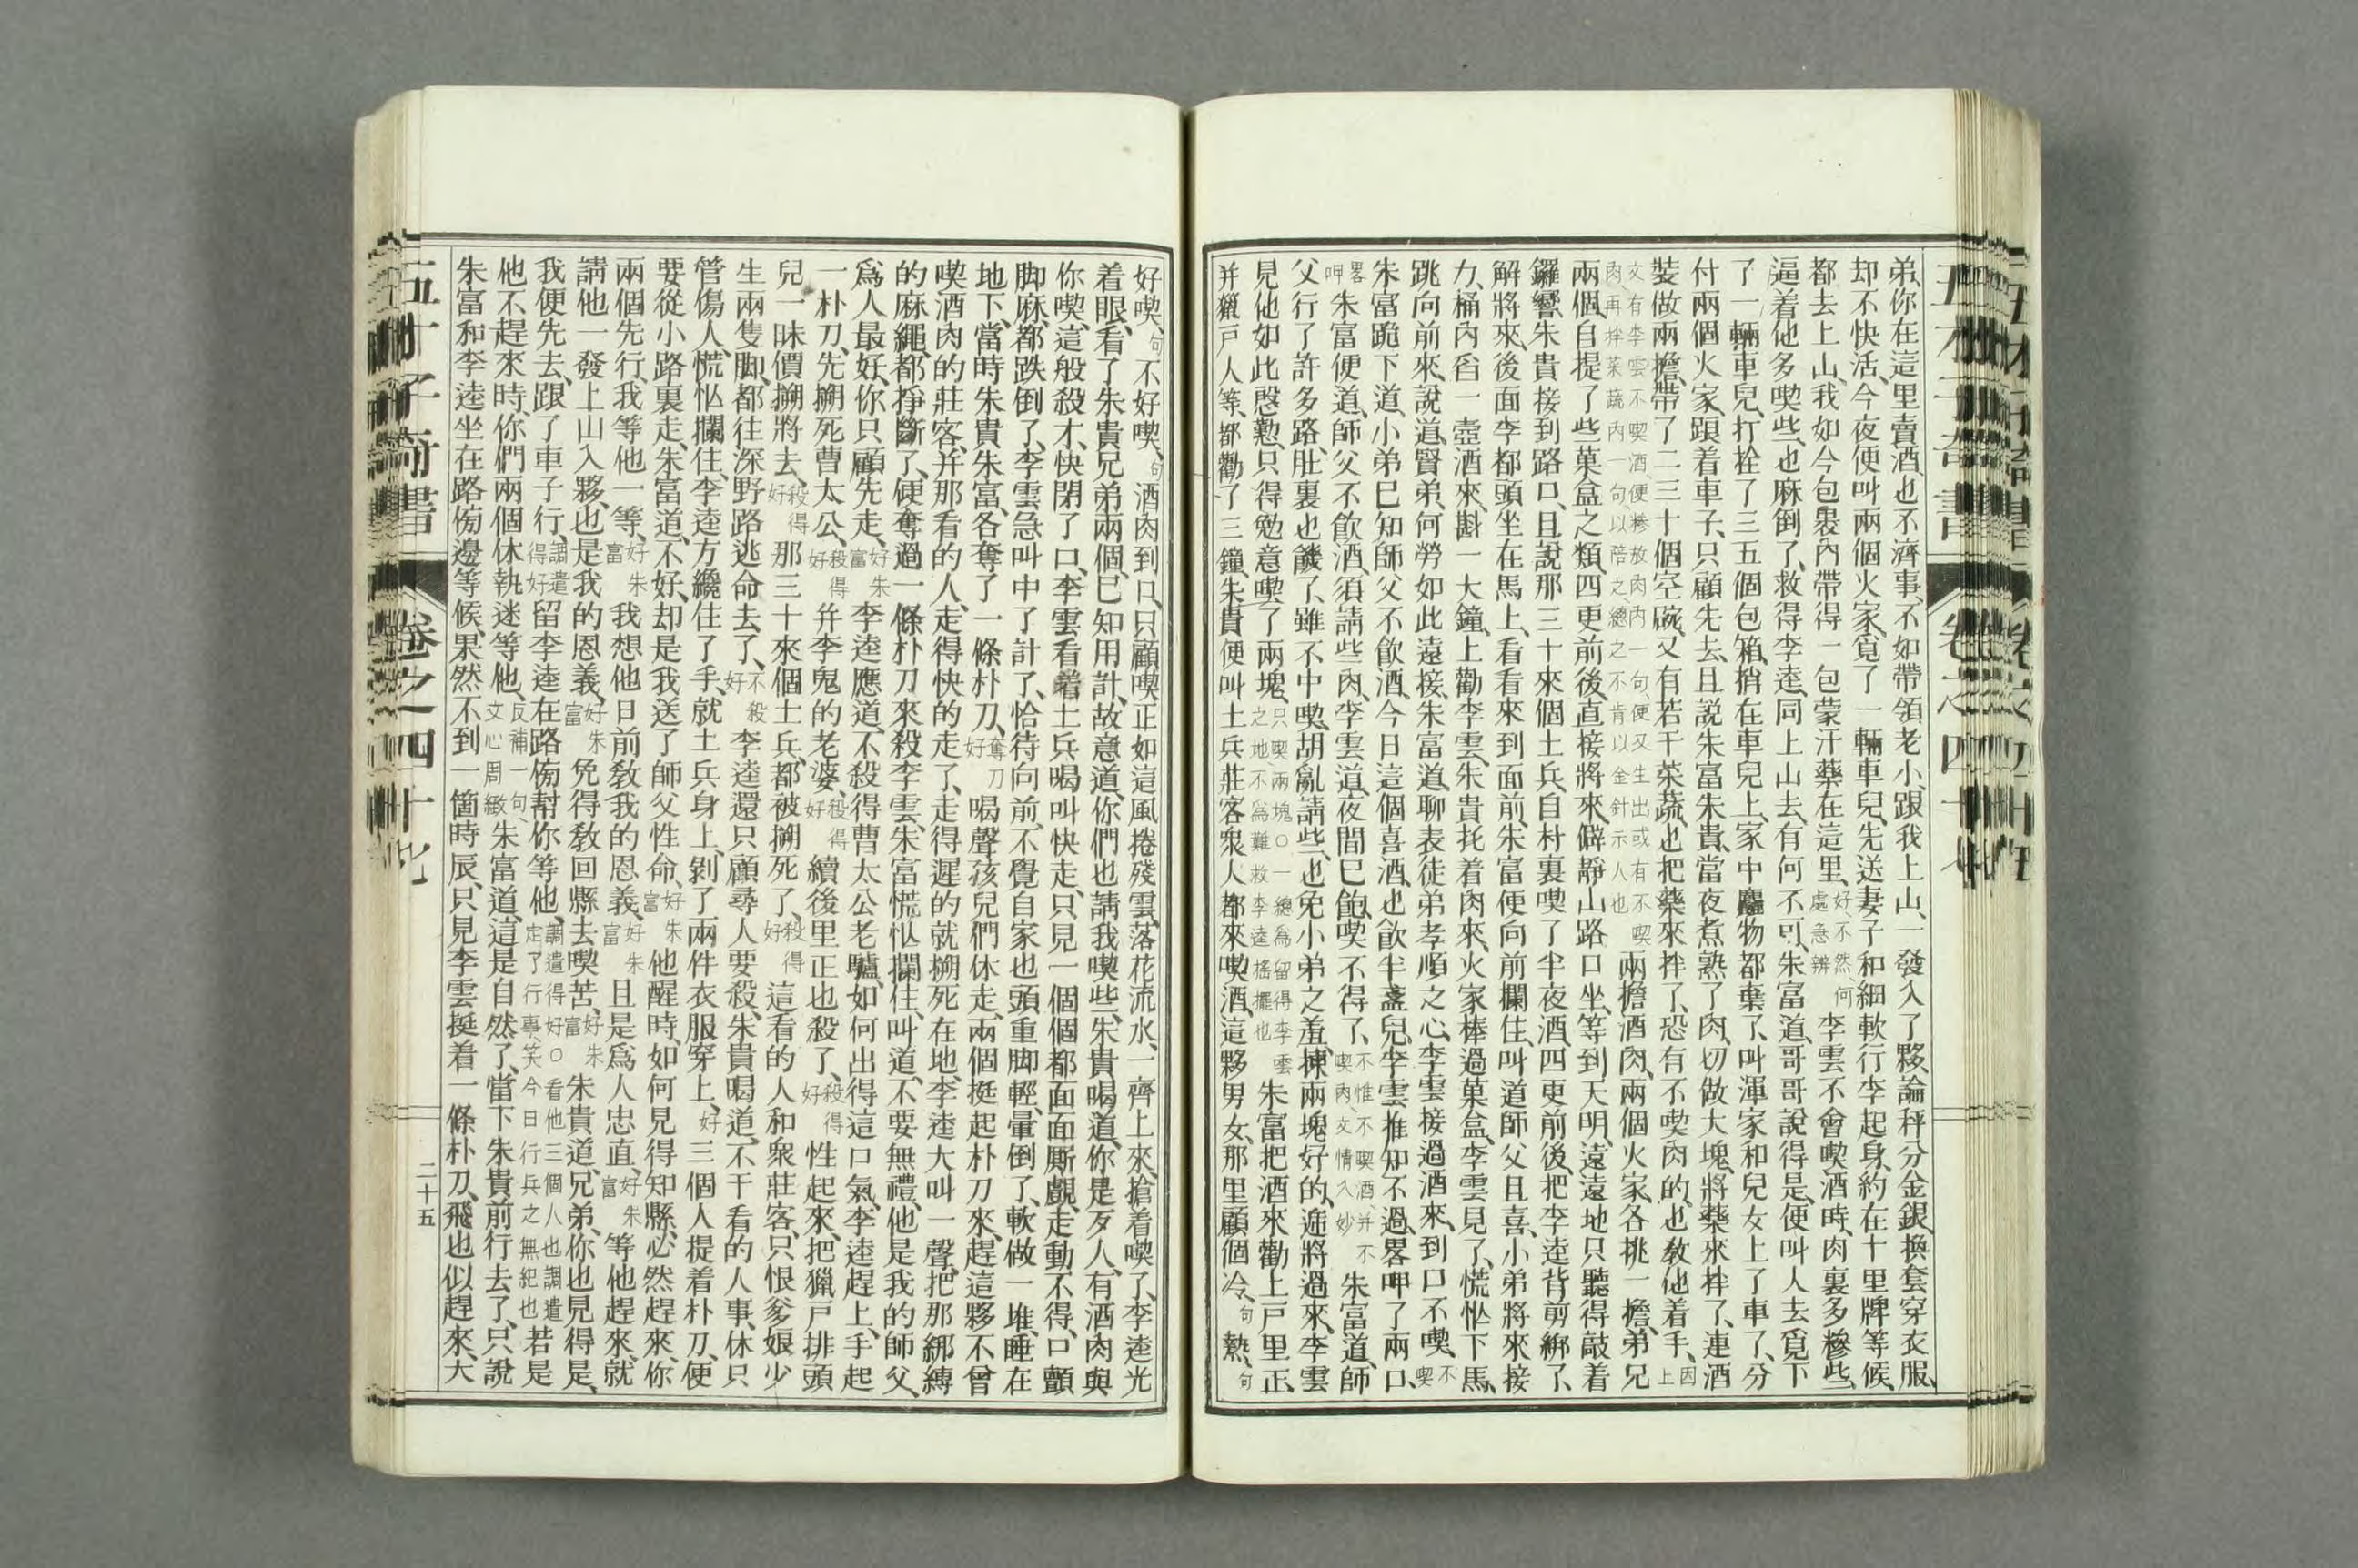 弟、你在這里賣酒、也不濟事、不如帶領老小、跟我上山、一發入了夥、論秤分金銀、換套穿衣服、
却不快活、今夜便叫兩個火家、覓了一輛車兒、先送妻子和細軟行李起身、約在十里牌等候、
都去上山、我如今包裹內帶得一包蒙汗藥在這里、好、不然、何處急辨李雲不會喫酒時、肉裏多糝些、
逼着他多喫些、也麻倒了、救得李逵、同上山去、有何不可、朱富道、哥哥說得是、便叫人去覓下
了一輛車兒、打拴了三五個包箱、捎在車兒上、家中麤物都棄了、叫渾家和兒女上了車了、分
付兩個火家、跟着車子、只顧先去、且說朱富朱貴、當夜煮熟了肉、切做大塊、將藥來拌了、連酒
裝做兩擔、帶了二三十個空碗、又有若干菜蔬、也把藥來拌了、恐有不喫肉的、也教他着手、因上
文有李雲不喫酒、便糝放肉內一句、便又生出或有不喫肉、再拌菜蔬內一句、以陪之、總之不肯以金針示人也兩擔酒肉、兩個火家、各挑一擔、弟兄
兩個、自提了些菓盒之類、四更前後、直接將來、僻靜山路口坐、等到天明、遠遠地只聽得敲着
鑼響、朱貴接到路口、且說那三十來個土兵、自村裏喫了半夜酒、四更前後、把李逵背剪綁了、
解將來、後面李都頭坐在馬上、看看來到面前、朱富便向前攔住、叫道師父且喜、小弟將來接
力、桶內舀一壺酒來、斟一大鐘、上勸李雲、朱貴托着肉來、火家捧過菓盒、李雲見了、慌忙下馬、
跳向前來、說道、賢弟、何勞如此遠接、朱富道、聊表徒弟孝順之心、李雲接過酒來、到口不喫、不喫
朱富跪下道、小弟已知師父不飲酒、今日這個喜酒、也飲半盞兒、李雲推却不過、畧呷了兩口、
畧呷朱富便道、師父不飲酒、須請些肉、李雲道、夜間已飽、喫不得了、不惟不喫酒、并不喫肉、文情入妙朱富道、師
父行了許多路、肚裏也饑了、雖不中喫、胡亂請些、也免小弟之羞、揀兩塊好的、遞將過來、李雲
見他如此慇懃、只得勉意喫了兩塊、只喫兩塊○一總爲留得李雲之地、不爲難救李逵搖擺也朱富把酒來勸上戶里正、
并獵戶人等、都勸了三鐘、朱貴便叫土兵莊客衆人都來喫酒、這夥男女、那里顧個冷、句熱、句
好喫、句不好喫、句酒肉到口、只顧喫、正如這風捲殘雲、落花流水、一齊上來、搶着喫了、李逵光
着眼、看了朱貴兄弟兩個、已知用計、故意道、你們也請我喫些、朱貴喝道、你是歹人、有酒肉與
你喫、這般殺才、快閉了口、李雲看着土兵、喝叫快走、只見一個個都面面厮覷、走動不得、口顫
脚麻、都跌倒了、李雲急叫中了計了、恰待向前、不覺自家也頭重脚輕、暈倒了、軟做一堆、睡在
地下、當時朱貴朱富、各奪了一條朴刀、奪刀好喝聲孩兒們休走、兩個挺起朴刀來、趕這夥不曾
喫酒肉的莊客、并那看的人、走得快的走了、走得遲的就搠死在地、李逵大叫一聲、把那綁縛
的麻繩、都掙斷了、便奪過一條朴刀來殺李雲、朱富慌忙攔住、叫道、不要無禮、他是我的師父、
爲人最好、你只顧先走、好朱富李逵應道、不殺得曹太公老驢、如何出得這口氣、李逵趕上、手起
一朴刀、先搠死曹太公、殺得好幷李鬼的老婆、殺得好續後里正也殺了、殺得好性起來、把獵戶排頭
兒一昧價搠將去、殺得好那三十來個土兵、都被搠死了、殺得好這看的人和衆莊客、只恨爹娘少
生兩隻脚、都往深野路逃命去了、不殺好李逵還只顧尋人要殺、朱貴喝道、不干看的人事、休只
管傷人、慌忙攔住、李逵方纔住了手、就土兵身上、剝了兩件衣服穿上、好三個人提着朴刀、便
要從小路裏走、朱富道、不好、却是我送了師父性命、好朱富他醒時、如何見得知縣、必然趕來、你
兩個先行、我等他一等、好朱富我想他日前敎我的恩義、好朱富且是爲人忠直、好朱富等他趕來、就
請他一發上山入夥、也是我的恩義、好朱富免得敎回縣去喫苦、好朱富朱貴道、兄弟、你也見得是、
我便先去、跟了車子行、調遣得好留李逵在路傍幫你等他、調遣得好○看他三個人也調遣定了行事、笑今日行兵之無犯也若是
他不趕來時、你們兩個、休執迷等他、反補一句、文心周緻朱富道、這是自然了、當下朱貴前行去了、只說
朱富和李逵坐在路傍邊等候、果然不到一箇時辰、只見李雲挺着一條朴刀、飛也似趕來、大
五才子奇書
卷之四十
二十五